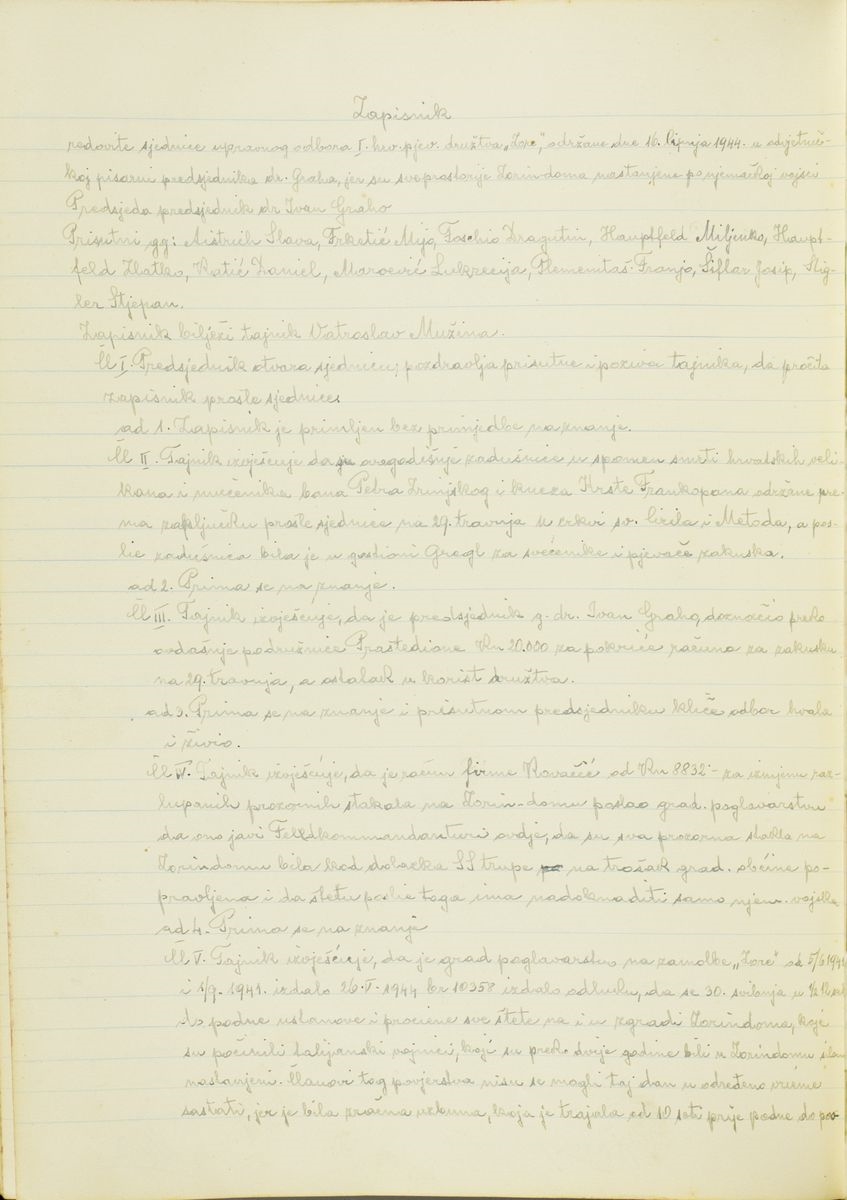 Zapisnik
redovite sjednice upravnog odbora I. hrv. pjev. družtva „Zore", održane dne 16. lipnja 1944. u odvjetnič-
koj pisarni predsjednika dr. Graha, jer su sve prostorije Zorin-doma nastanjene po njemačkoj vojsci
Predsjeda predsjednik dr Ivan Graho
Prisutni gg: Aistrich Slava, Frketić Mijo, Foschio Dragutin, Hauptfeld Miljenko, Haupt-
feld Zlatko, Katić Daniel, Maroević Lukrecija, Plemenitaš Franjo, Šiflar Josip, Stig-
ler Stjepan.
Zapisnik bilježi tajnik Vatroslav Mužina.
Čl I. Predsjednik otvara sjednicu, pozdravlja prisutne i poziva tajnika, da pročita
zapisnik prošle sjednice.
ad 1. Zapisnik je primljen bez primjedbe na znanje.
Čl II. Tajnik izvješćuje da su ovogodišnje zadušnice u spomen smrti hrvatskih veli-
kana i mučenika bana Petra Zrinjskog i kneza Krste Frankopana održane pre-
ma zaključku prošle sjednice na 29. travnja u crkvi sv. Ćirila i Metoda, a pos-
lie zadušnica bila je u gostioni Gregl za svećenike i pjevače zakuska.
ad 2. Prima se na znanje.
Čl III. Tajnik izvješćuje, da je predsjednik g. dr. Ivan Graho, doznačio preko
ovdašnje podružnice Praštedione Kn 20.000 za pokriće računa za zakusku
na 29. travnja, a ostatak u korist družtva.
ad 3. Prima se na znanje i prisutnom predsjedniku kliče odbor hvala
i živio.
Čl IV. Tajnik izvješćuje, da je račun firme Kovačić od Kn 8832.- za izmjenu raz-
lupanih prozornih stakala na Zorin-domu poslao grad. poglavarstvu
da ono javi Felldkommandanturi ovdje, da su sva prozorna stakla na
Zorindomu bila kod dolazka SS trupe na trošak grad. obćine po-
pravljena i da štetu poslie toga ima nadoknaditi samo njem. vojska
ad 4. Prima se na znanje
Čl V. Tajnik izvješćuje, da je grad poglavarstvo na zamolbe „Zore" od 5/6 1941
i 1/9. 1941. izdalo 26. V. 1944 br 10358 izdalo odluku, da se 30. svibnja u 1/2 12 sati
do podne ustanove i prociene sve štete na i u zgradi Zorindoma, koje
su počinili talijanski vojnici, koji su preko dvije godine bili u Zorindomu silom
nastanjeni. Članovi tog povjerstva nisu se mogli taj dan u određeno vrieme
sastati, jer je bila zračna uzbuna, koja je trajala od 10 sati prije podne do pos-